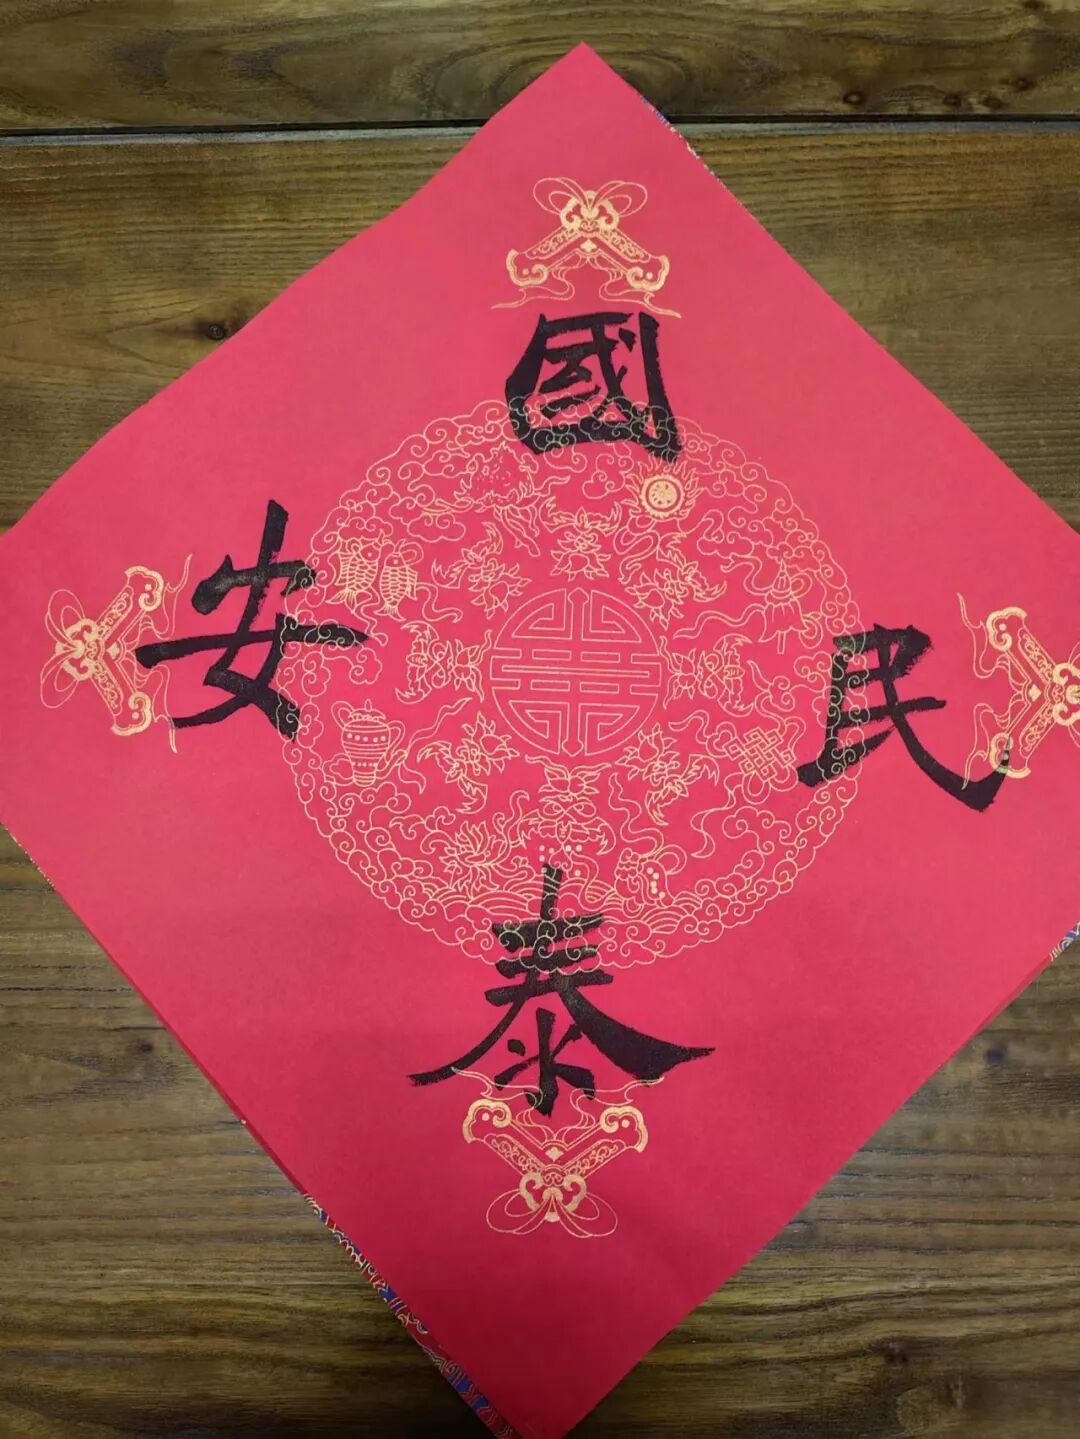 國
泰
民
安